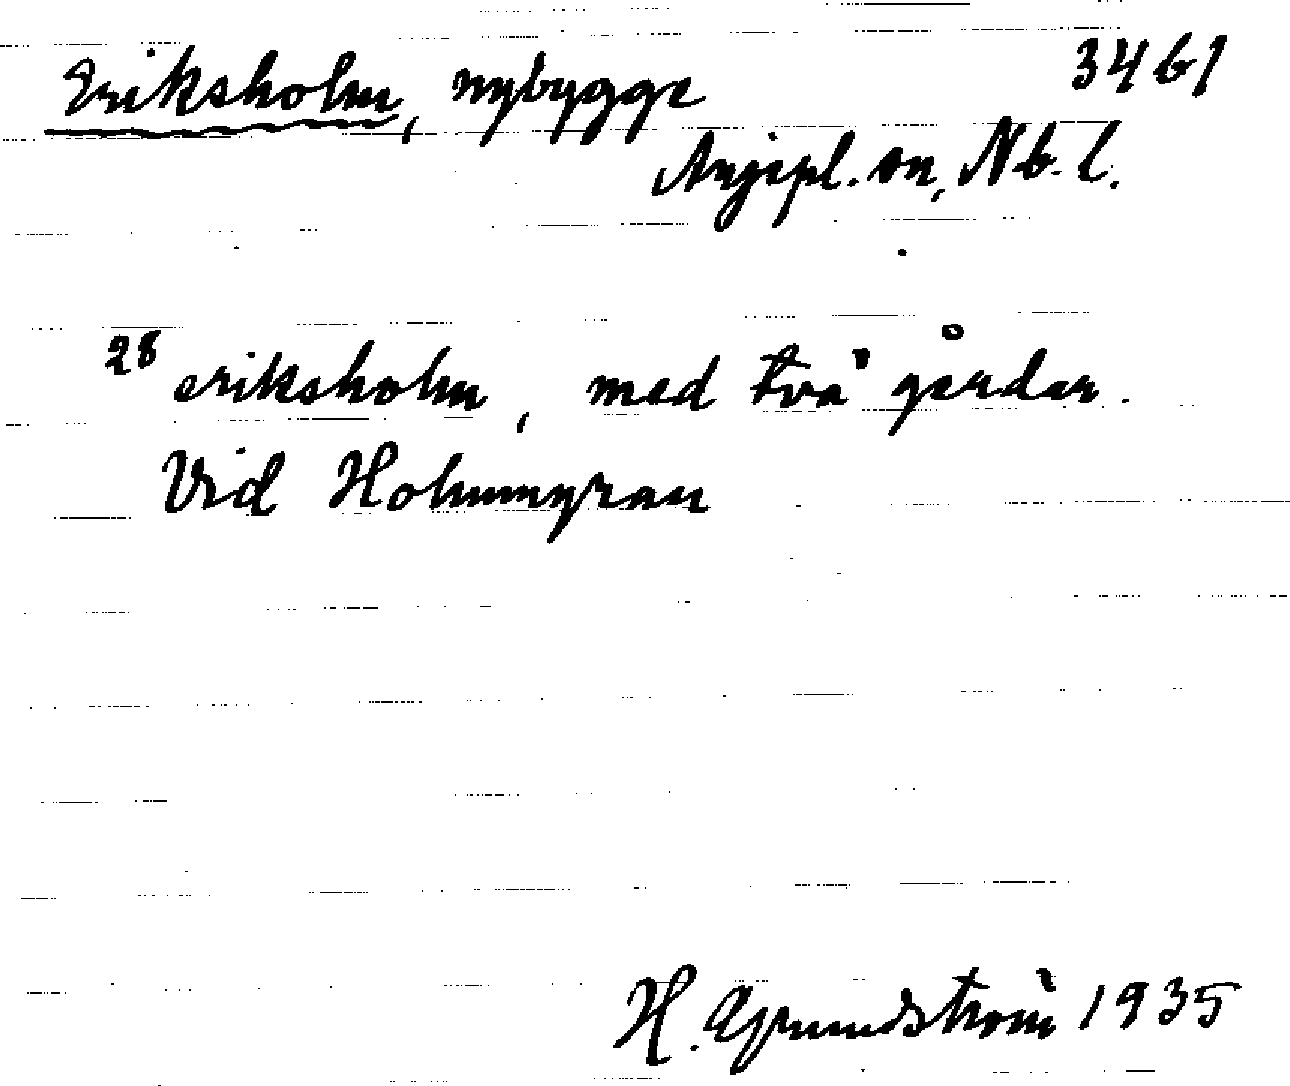 Eriksholm, nybygge 3461
Arjepl. sn, Nb. l.
28 eriksholm, med två gårdar.
Vid Holmmyran
H. Grundström 1935